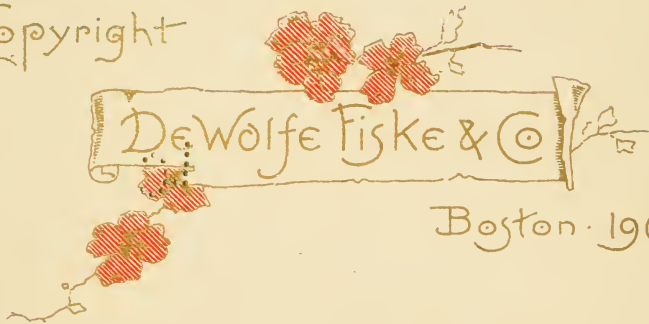 Copyright
DeWolfe Fiske & Co
Boston · 190